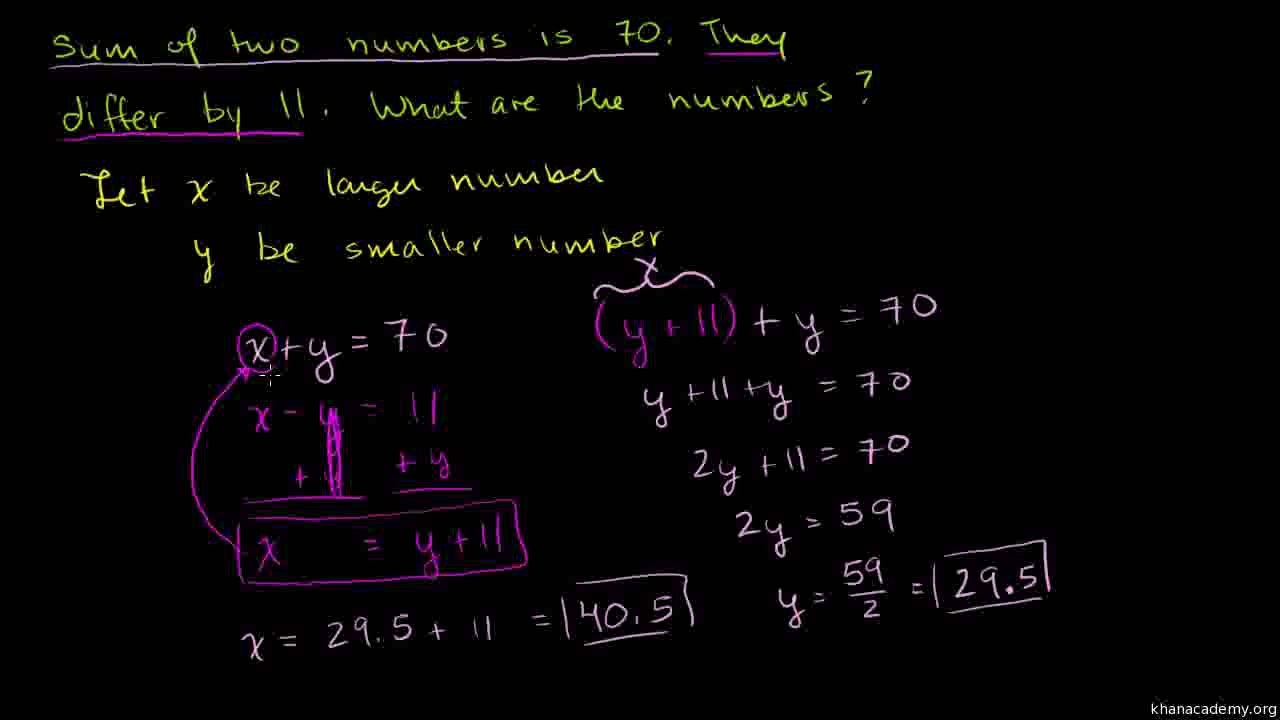 Sum of two numbers is 70. They
differ by 11. What are the numbers?
Let x be larger number
y be smaller number
x
x + y = 70
(y + 11) + y = 70
x - y = 11
y + 11 + y = 70
+ y + y
2y + 11 = 70
x = y + 11
2y = 59
x = 29.5 + 11 = 40.5
y = 59/2 = 29.5
khanacademy.org